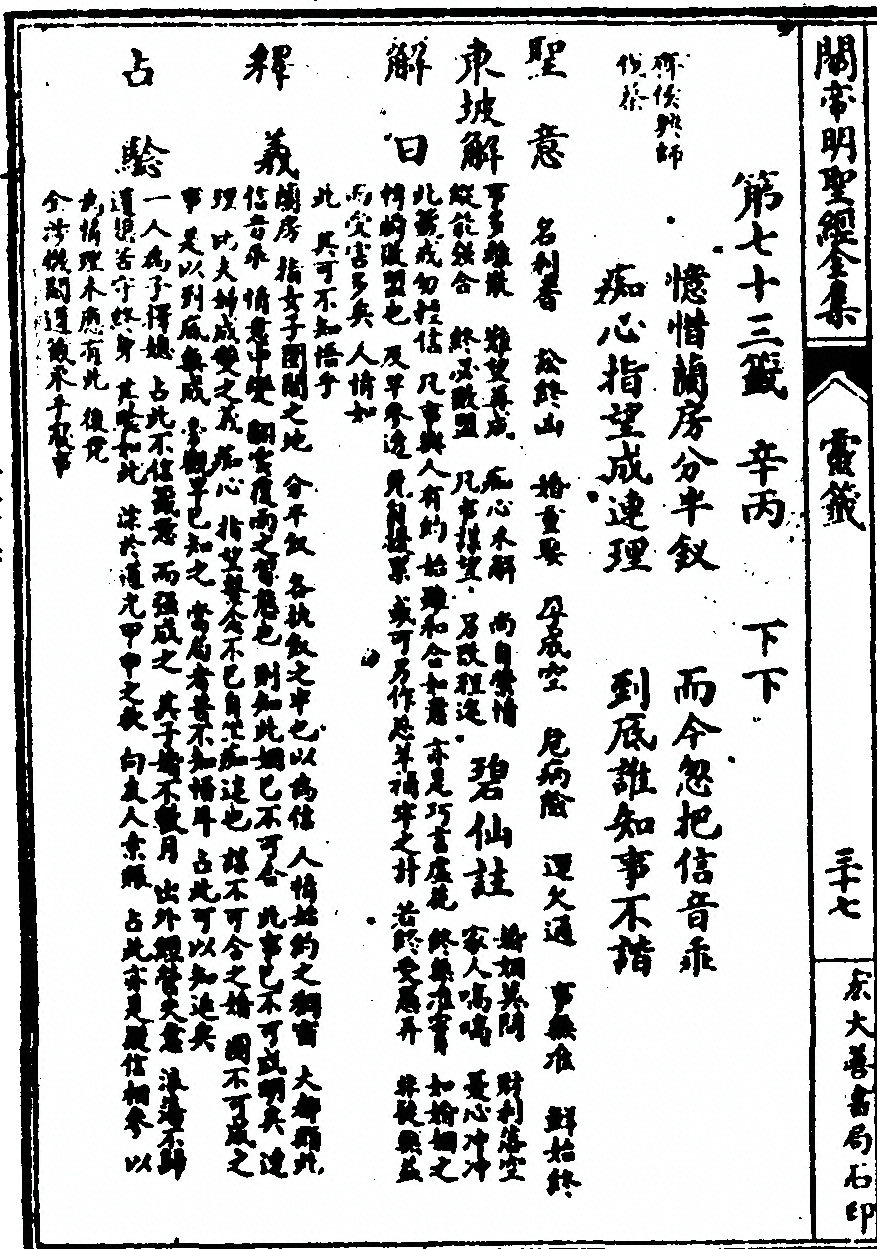 關帝明聖經全集
靈籤
三十七
宏大善書局石印
第七十三籤 辛丙 下下
憶惜蘭房分半釵 而今忽把信音乖
痴心指望成連理 到底誰知事不諧
齊侯興師
伐蔡
聖意 名利普 訟終凶 婚重娶 孕成空 危病險 運欠通 事無准 鮮始終
東坡解 事多離散 難望再成 痴心未解 尚自縈情
縱能強合 終必敗盟 凡事揆望 另改程途
碧仙註 婚姻莫問 財利落空
家人嗃嗃 憂心冲冲
解曰 此籤戒勿輕信 凡事與人有約 始雖和合如意 亦是巧言虛花 終無准實 如婚姻之
情的敗盟也 及早參透 免到擾累 或可另作 若終受愚弄 無益
而受害多矣 人情如
此 其可不知悟乎
釋義 蘭房 指女子閨閣之地 分半釵 各執釵之半也 以為信 人情始約之綢密 大都類此
信音乖 情意中變 翻雲覆雨之習態也 則知此姻已不可合 此事已不可成明矣 連
理 比夫婦成雙之義 痴心 指望繫念不已 自坐痴迷也 謀不可合之婚 圖不可成之
事 是以到底無成 旁觀早已知之 當局者昔不知悟耳 占此可以知退矣
占驗 一人為子擇媳 占此不信籤意 而強成之 其子婚不數月 出外經營失意 浪蕩不歸
遺媳苦守終身 其驗如此 洙於道光甲申之秋 向友人索賬 占此亦是疑信相參 以
為情理未應有此 後竟
全涉